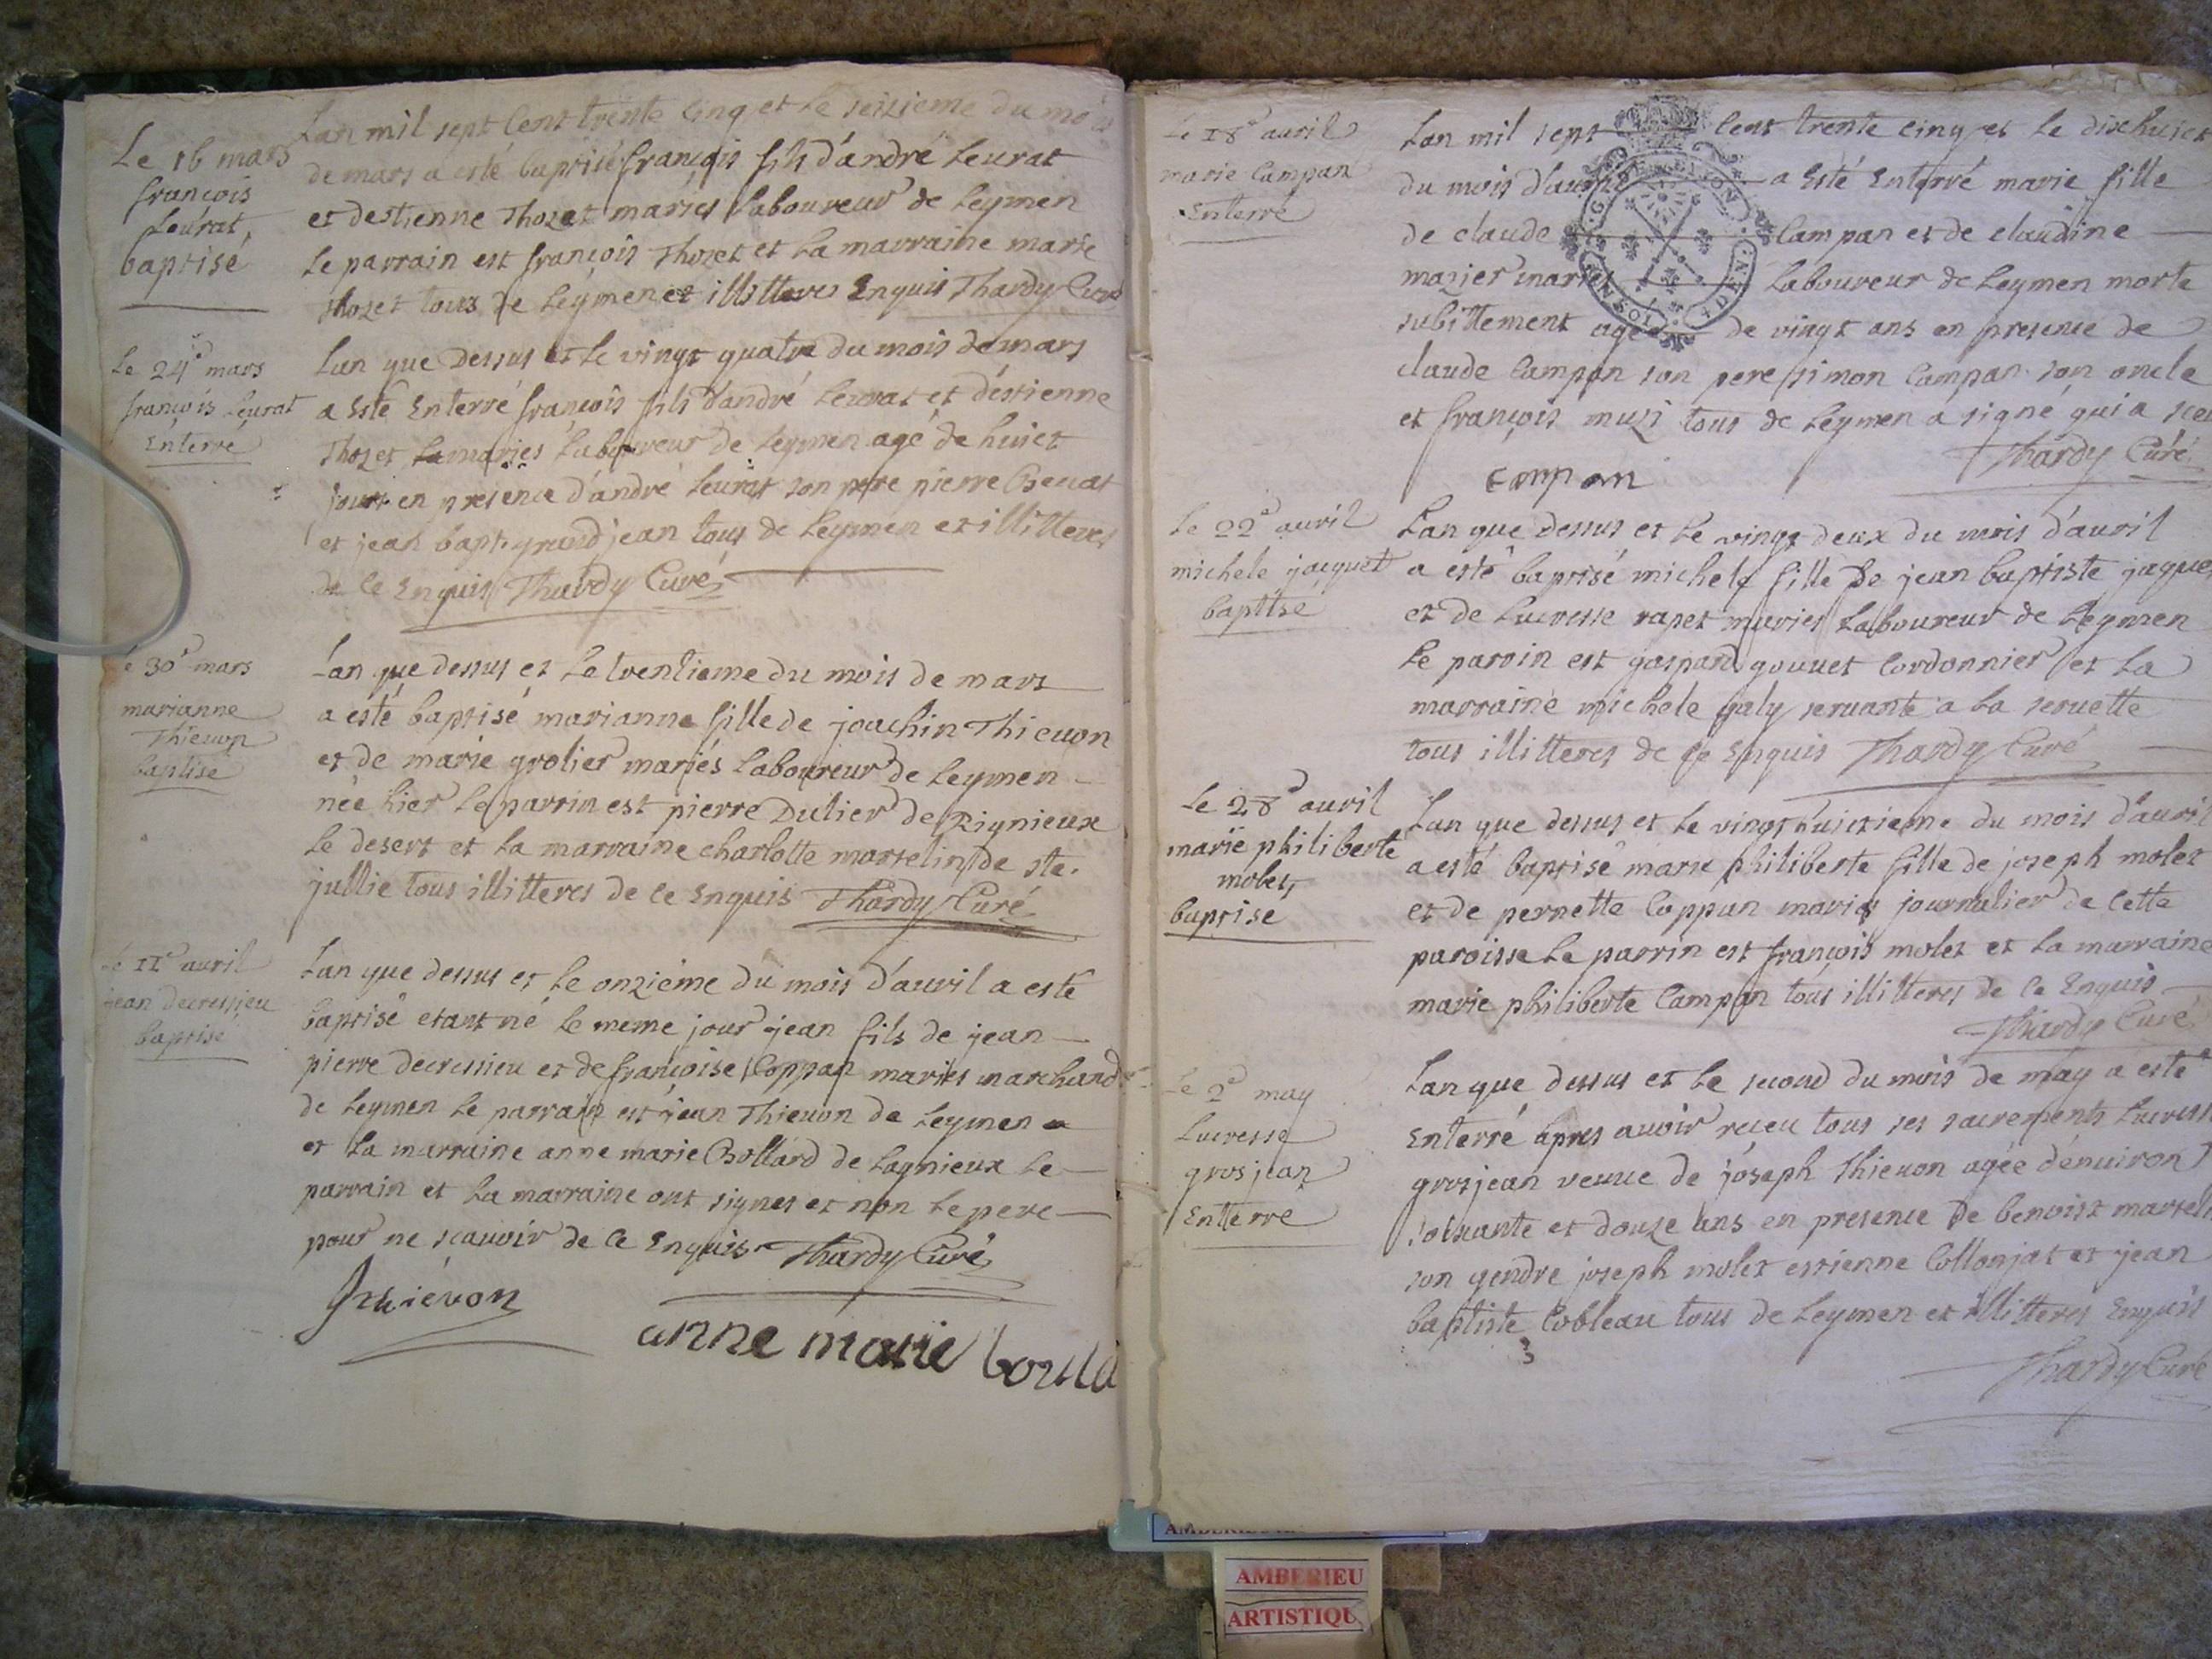 Le 16 mars
françois
Leurat
baptisé
Lan mil sept Cent trente Cinq et Le seizieme du mois
de mars a esté baptisé françois fils d'andré Leurat
et destienne Thozet mariés Laboureur de Leymen
Le parrain est françois Thozet et La marraine marie
thozet tous de Leymen et illitteres Enquis Thardy Curé
Le 24e mars
françois Leurat
Enterré
Lan que Dessus et Le vingt quatre du mois de mars
a Esté Enterré françois fils d'andré Leurat et d'estienne
Thozet mariés Laboureur de Leymen agé de huict
jours en presence d'andré Leurat son pere pierre
et jean bapt. grandjean tous de Leymen et illitteres
de Ce Enquis Thardy Curé
Le 30e mars
marianne
Thieuon
baptisé
Lan que dessus et Le trentieme du mois de mars
a esté baptisé marianne fille de joachin Thieuon
et de marie grolier mariés Laboureur de Leymen
née hier Le parrin est pierre Dulier de Rignieux
Le desert et La marraine charlotte martelin de ste.
jullie tous illitteres de Ce Enquis Thardy Curé
Le 11e auril
jean decressieu
baptisé
Lan que dessus et Le onziéme du mois d'auril a esté
baptisé etant né Le meme jour jean fils de jean
pierre decressieu et de françoise Coppan mariés marchand
de Leymen Le parrain est jean Thieuon de Leymen
et La marraine anne marie Bollard de Lagnieux Le
parrain et La marraine ont signes et non Le pere
pour ne scauoir de Ce Enquis Thardy Curé
Jthiévon
anne marie
Le 18e auril
marie Campan
Enterré
Lan mil sept Cent trente Cinq et Le dixhuict
du mois d'auril a Esté Enterré marie fille
de claude Campan et de claudine
mazier mariés Laboureur de Leymen morte
subittement agée de vingt ans en presence de
claude Campan son pere simon Campan son oncle
et françois muzi tous de Leymen a signé qui a sceu
Thardy Curé
compan
Le 22e auril
michele jaquet
baptisé
Lan que dessus et Le vingt deux du mois d'auril
a esté baptisé michele fille de jean baptiste jaque
et de Lucresse rapet mariés Laboureur de Leymen
Le paroin est gaspard gouuet Cordonnier et La
marraine michele galy seruante a La seruette
tous illitteres de Ce Enquis Thardy Curé
Le 28e auril
marie philiberte
molet
baptisé
Lan que dessus et Le vingt huictieme du mois d'auril
a esté baptisé marie philiberte fille de joseph molet
et de pernette Coppan mariés journalier de Cette
paroisse Le parrin est françois molet et La marraine
marie philiberte Campan tous illitteres de Ce Enquis
Thardy Curé
Le 2e may
Lucresse
grosjean
Enterré
Lan que dessus et Le second du mois de may a esté
Enterré apres auoir receu tous ses sacrements Lucresse
grosjean veuue de joseph Thieuon agée d'enuiron
soixante et douze ans en presence de benoist martel
son gendre joseph molet estienne Collonjat et jean
baptiste Cobleau tous de Leymen et illitteres Enquis
Thardy Curé
AMBERIEU
ARTISTIQU